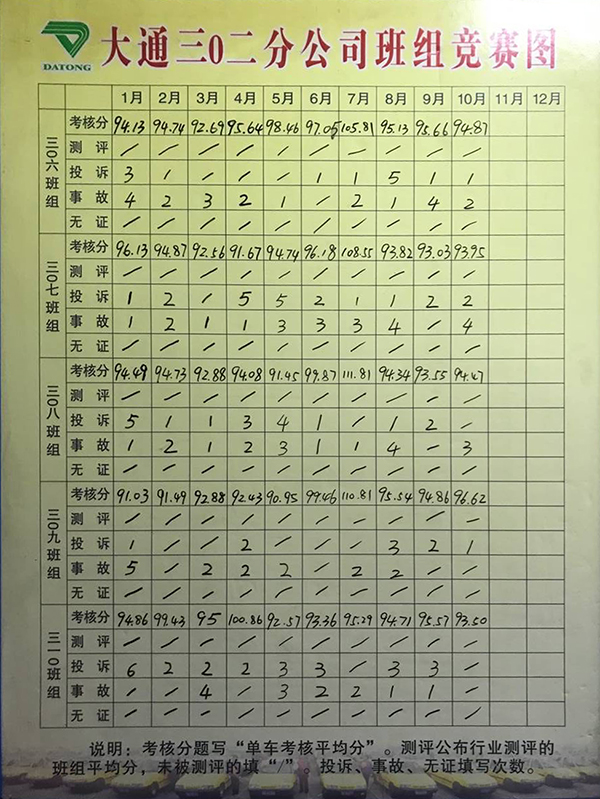 DATONG 大通三0二分公司班组竞赛图
1月 2月 3月 4月 5月 6月 7月 8月 9月 10月 11月 12月
三〇六班组
考核分 94.13 94.74 92.69 95.64 98.46 97.05 105.81 95.13 95.66 94.87
测评 / / / / / / / / / /
投诉 3 1 / / / 1 1 5 1 1
事故 4 2 3 2 1 / 2 1 4 2
无证 / / / / / / / / / /
三〇七班组
考核分 96.13 94.87 92.56 91.67 94.74 96.18 108.55 93.82 93.03 93.95
测评 / / / / / / / / / /
投诉 1 2 / 5 5 2 1 1 2 2
事故 1 2 1 1 3 3 3 4 / 4
无证 / / / / / / / / / /
三〇八班组
考核分 94.49 94.73 92.88 94.08 91.45 99.87 111.81 94.34 93.55 94.47
测评 / / / / / / / / / /
投诉 5 1 1 3 4 1 / 1 2 /
事故 1 2 1 2 3 1 1 4 / 3
无证 / / / / / / / / / /
三〇九班组
考核分 91.03 91.49 92.88 92.43 90.95 99.46 110.81 95.54 94.86 96.62
测评 / / / / / / / / / /
投诉 1 / / 2 / / / 3 2 1
事故 5 / 2 2 2 / 2 2 / /
无证 / / / / / / / / / /
三一〇班组
考核分 94.86 99.43 95 100.86 92.57 93.36 95.29 94.71 95.57 93.50
测评 / / / / / / / / / /
投诉 6 2 2 2 3 3 / 3 3 /
事故 / / 4 / 3 2 2 1 1 /
无证 / / / / / / / / / /
说明：考核分题写“单车考核平均分”。测评公布行业测评的
班组平均分，未被测评的填“/”。投诉、事故、无证填写次数。